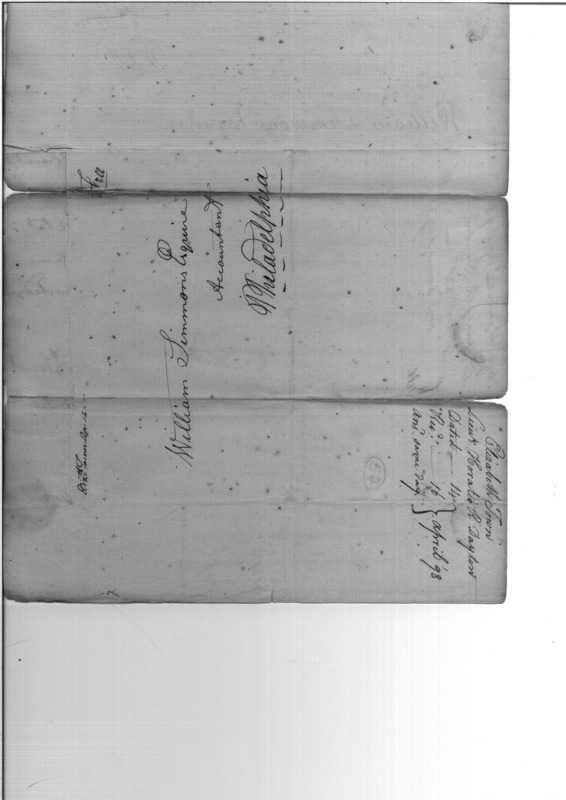 Free
William Simmons Esquire
Accountant
Philadelphia
Elizabeth Town
Lieut Horatio R Dayton
Dated — 14
Rec'd — 16 } April 98
Ans. same day